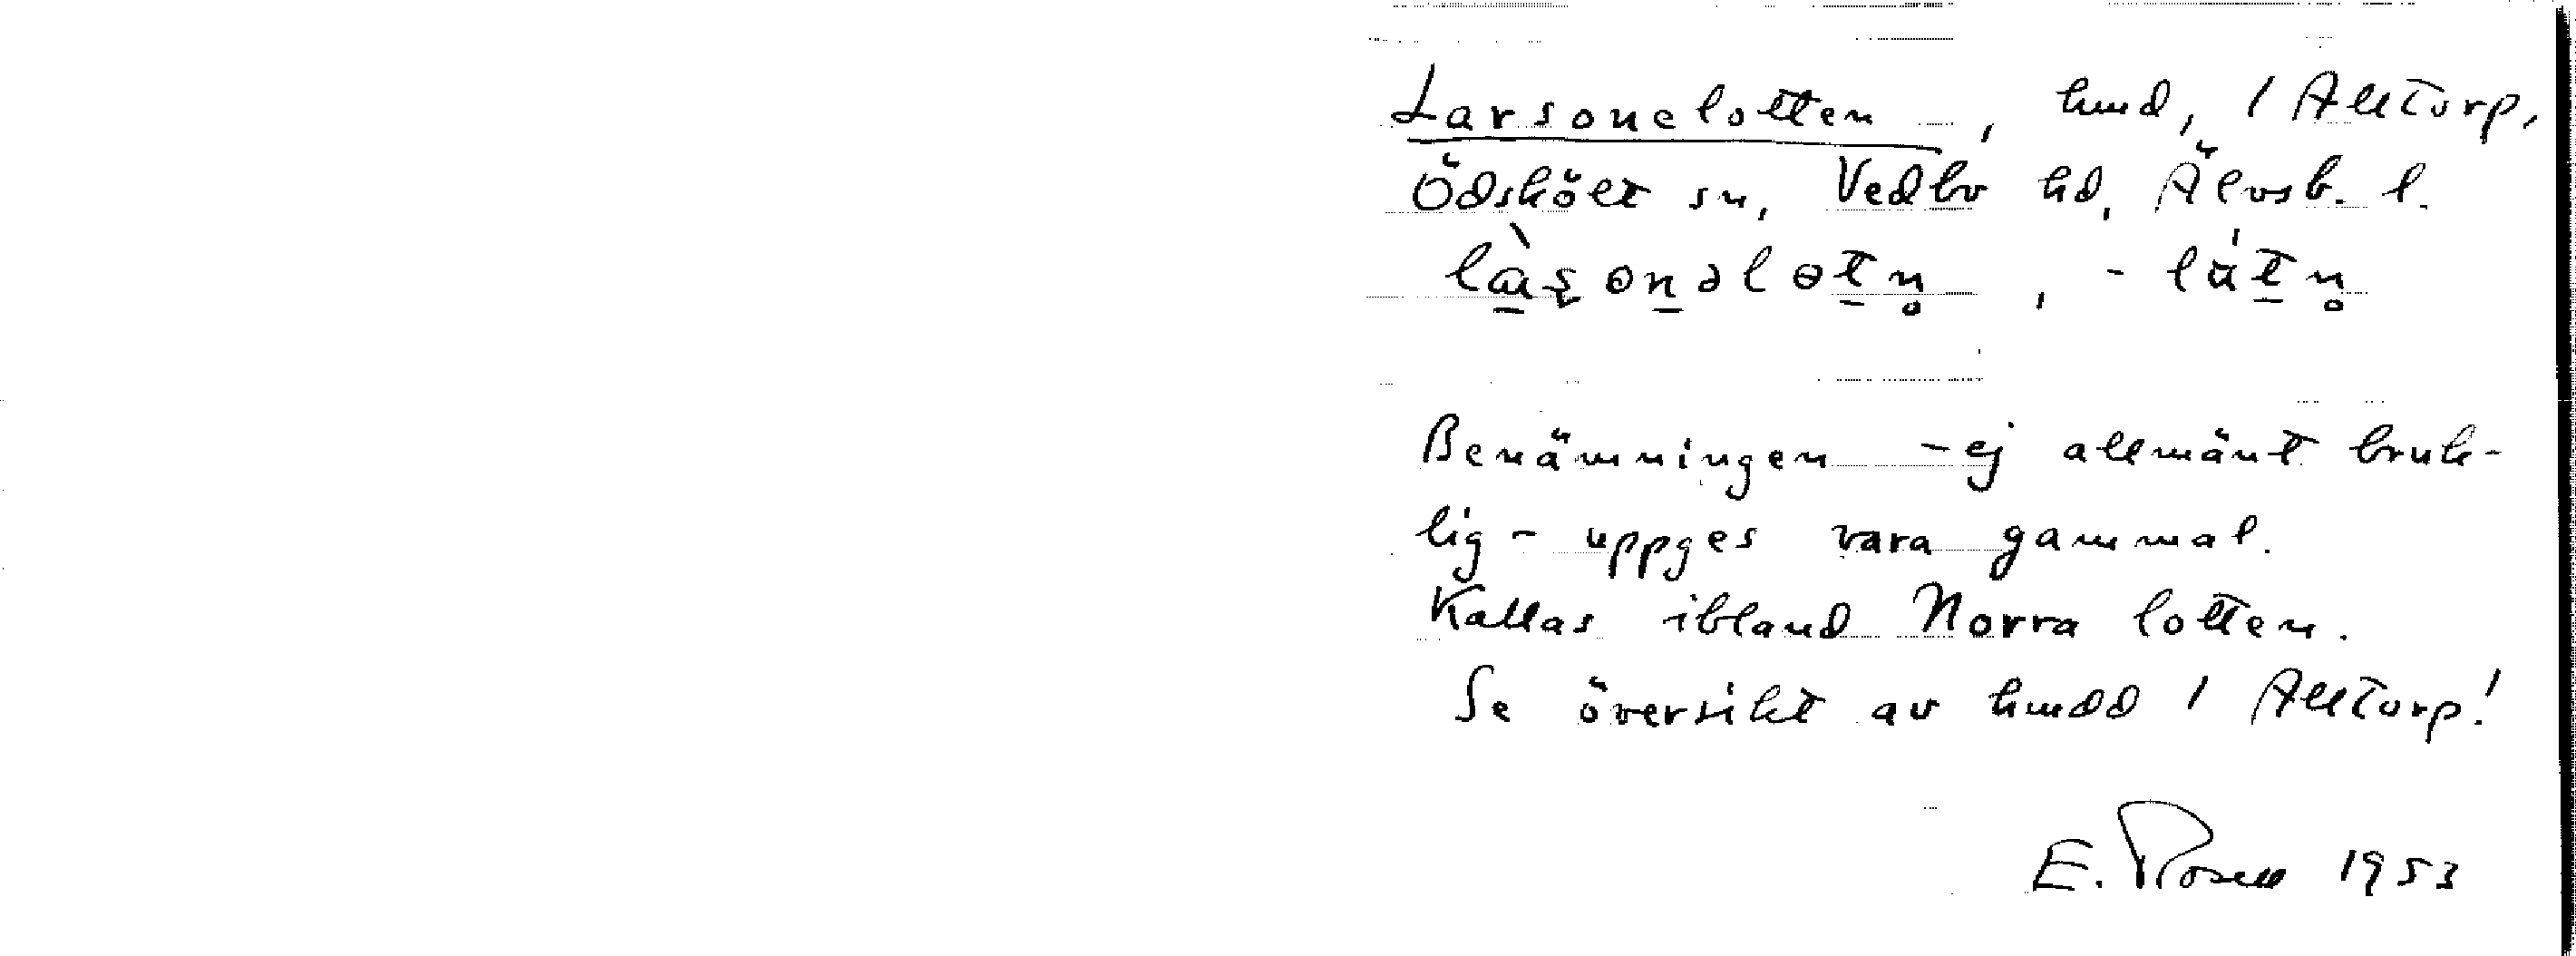 Larsonelotten, hmd, 1 Alltorp,
Ödskölt sn, Vedbo hd, Älvsb. l.
Benämningen - ej allmänt bruk-
lig - uppges vara gammal.
Kallas ibland Norra lotten.
Se översikt av hmdd 1 Alltorp!
E. Rosell 1953